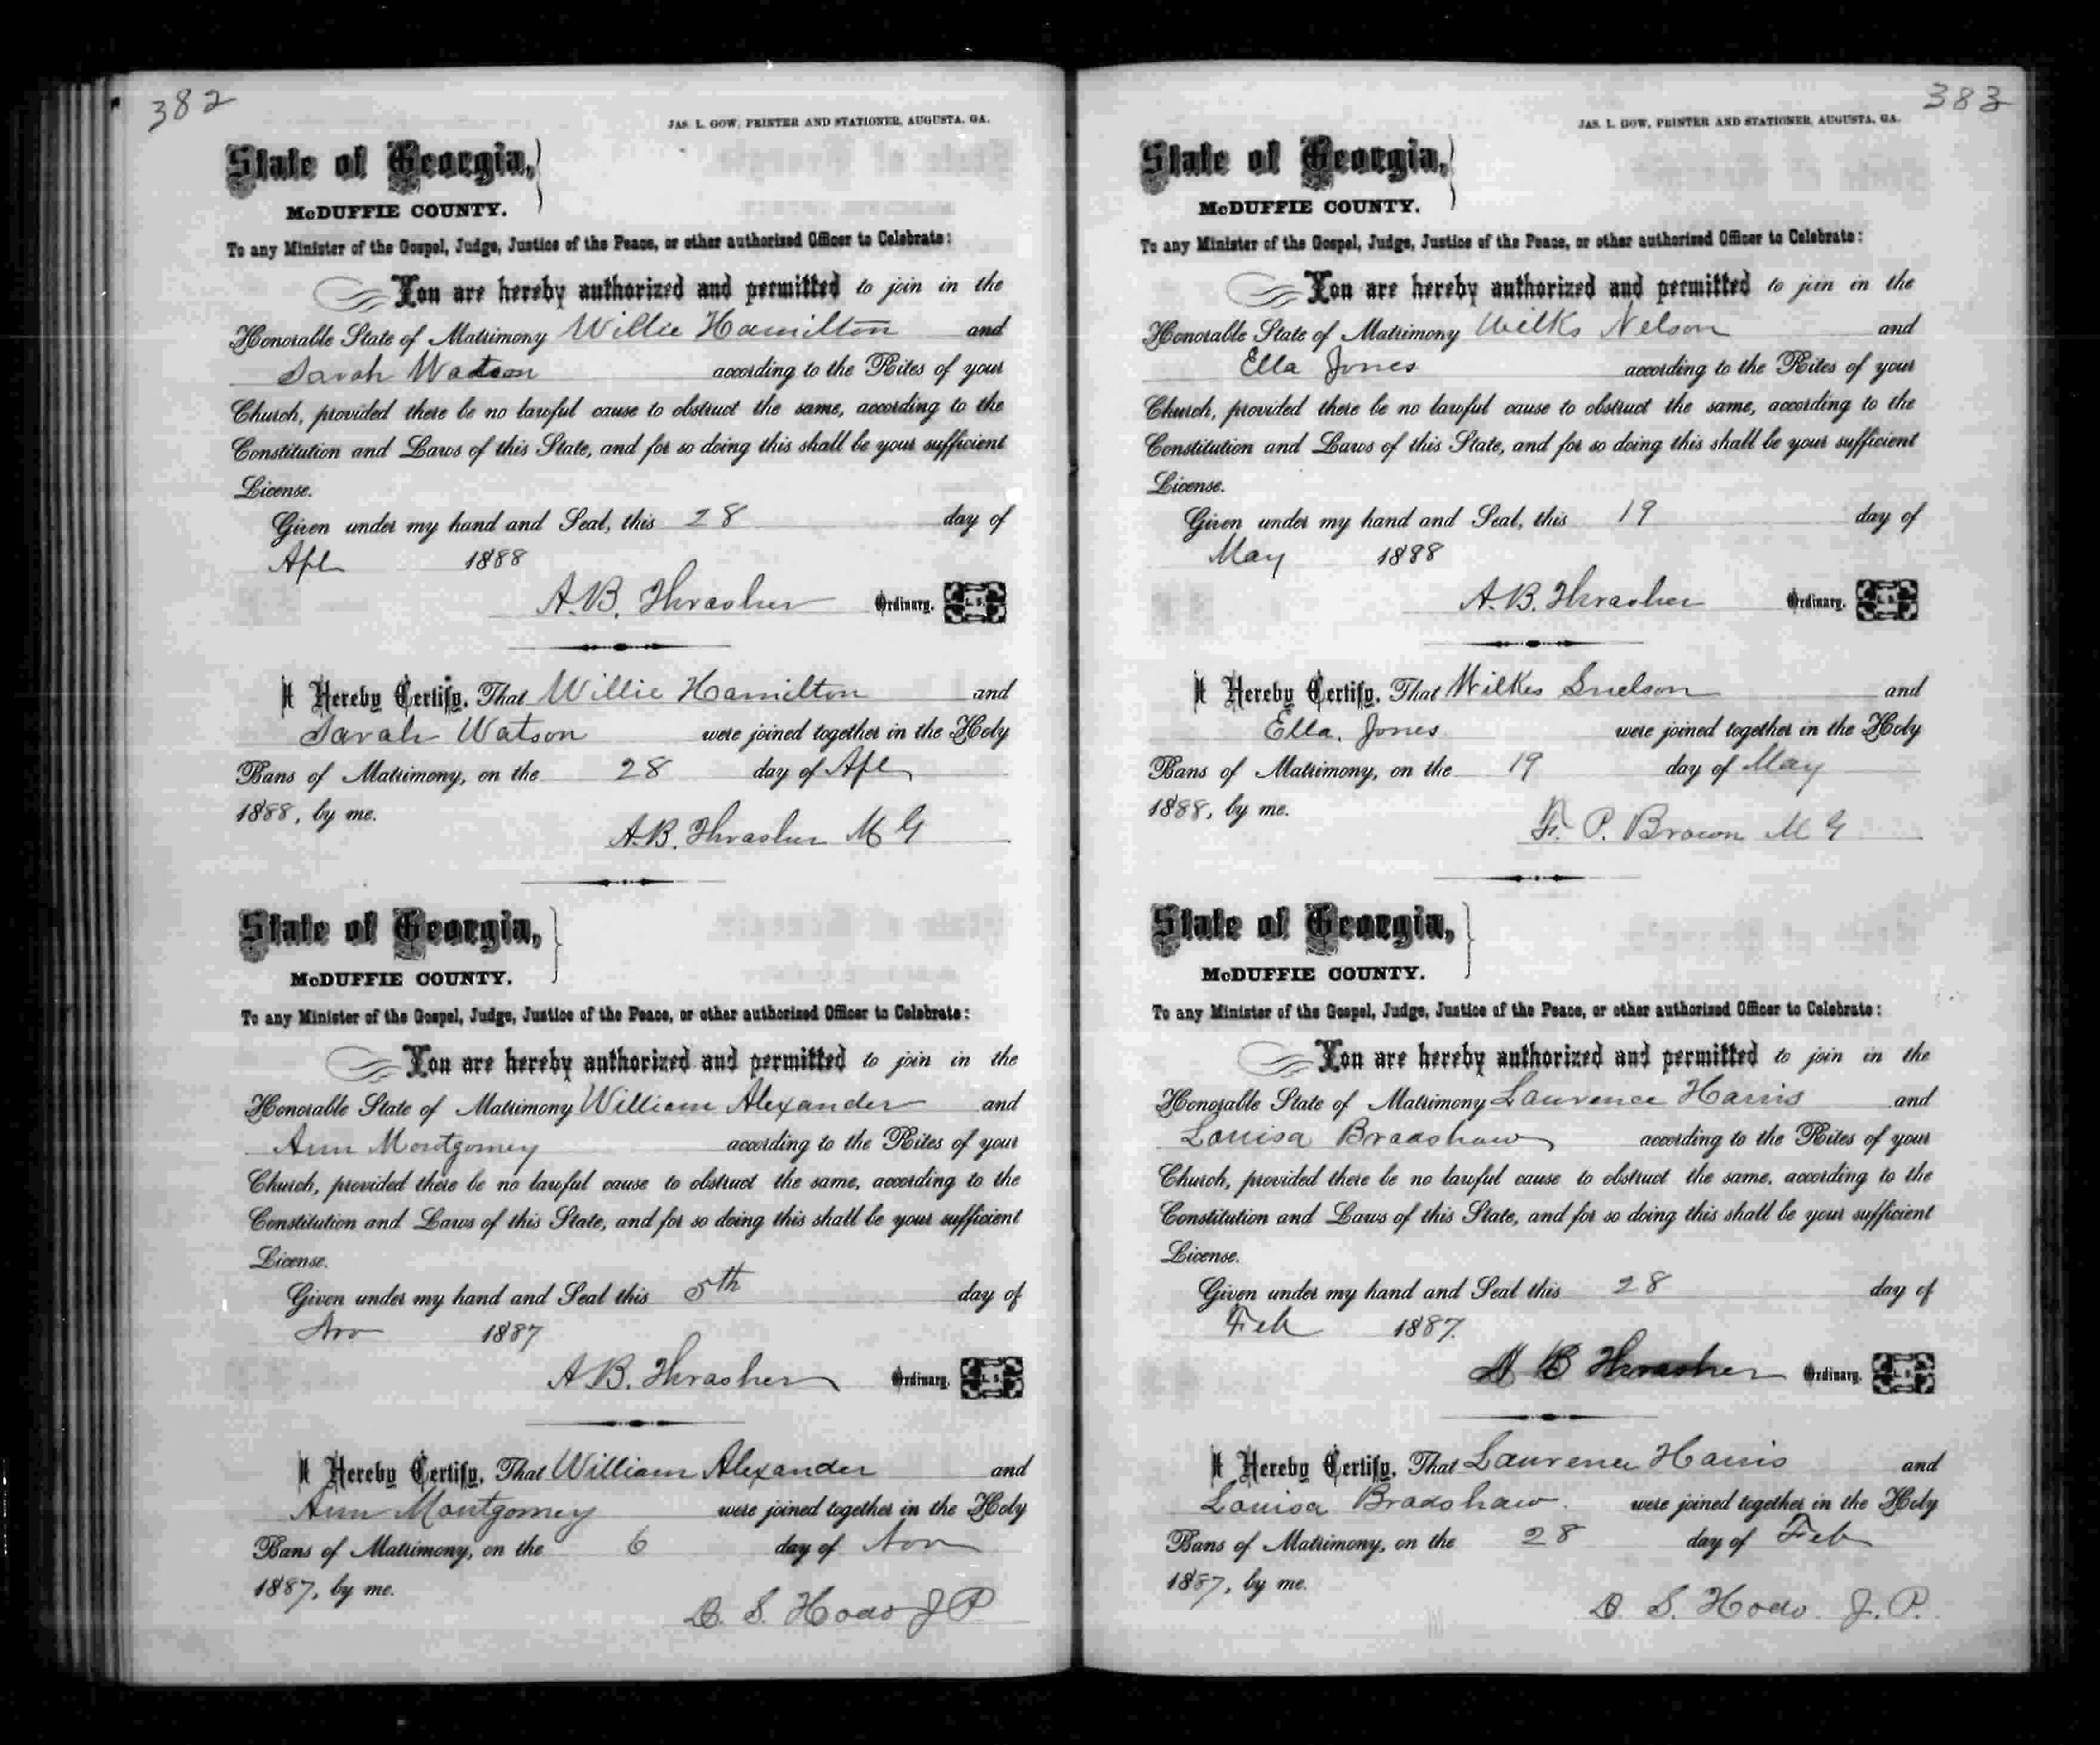 382
JAS. L. GOW, PRINTER AND STATIONER, AUGUSTA, GA.
State of Georgia,
McDUFFIE COUNTY.
To any Minister of the Gospel, Judge, Justice of the Peace, or other authorized Officer to Celebrate:
You are hereby authorized and permitted to join in the
Honorable State of Matrimony Willie Hamilton and
Sarah Watson according to the Rites of your
Church, provided there be no lawful cause to obstruct the same, according to the
Constitution and Laws of this State, and for so doing this shall be your sufficient
License.
Given under my hand and Seal, this 28 day of
Apl 1888
A.B. Thrasher Ordinary. L. S.
I Hereby Certify, That Willie Hamilton and
Sarah Watson were joined together in the Holy
Bans of Matrimony, on the 28 day of Apl
1888, by me.
A.B. Thrasher M G
State of Georgia,
McDUFFIE COUNTY.
To any Minister of the Gospel, Judge, Justice of the Peace, or other authorized Officer to Celebrate:
You are hereby authorized and permitted to join in the
Honorable State of Matrimony William Alexander and
Ann Montgomey according to the Rites of your
Church, provided there be no lawful cause to obstruct the same, according to the
Constitution and Laws of this State, and for so doing this shall be your sufficient
License.
Given under my hand and Seal this 5th day of
Nov 1887
A B. Thrasher Ordinary. L. S.
I Hereby Certify, That William Alexander and
Ann Montgomey were joined together in the Holy
Bans of Matrimony, on the 6 day of Nov
1887, by me.
D. S. Hodo J P
383
JAS. L. GOW, PRINTER AND STATIONER, AUGUSTA, GA.
State of Georgia,
McDUFFIE COUNTY.
To any Minister of the Gospel, Judge, Justice of the Peace, or other authorized Officer to Celebrate:
You are hereby authorized and permitted to join in the
Honorable State of Matrimony Wilks Nelson and
Ella Jones according to the Rites of your
Church, provided there be no lawful cause to obstruct the same, according to the
Constitution and Laws of this State, and for so doing this shall be your sufficient
License.
Given under my hand and Seal, this 19 day of
May 1888
A. B. Thrasher Ordinary. L. S.
I Hereby Certify, That Wilkes Snelson and
Ella. Jones were joined together in the Holy
Bans of Matrimony, on the 19 day of May
1888, by me.
P. Brown M G
State of Georgia,
McDUFFIE COUNTY.
To any Minister of the Gospel, Judge, Justice of the Peace, or other authorized Officer to Celebrate:
You are hereby authorized and permitted to join in the
Honorable State of Matrimony Laurence Harris and
Louisa Bradshaw according to the Rites of your
Church, provided there be no lawful cause to obstruct the same, according to the
Constitution and Laws of this State, and for so doing this shall be your sufficient
License.
Given under my hand and Seal this 28 day of
Feb 1887.
A B Thrasher Ordinary. L. S.
I Hereby Certify, That Laurence Harris and
Louisa Bradshaw. were joined together in the Holy
Bans of Matrimony, on the 28 day of Feb
1887, by me.
D S. Hodo. J. P.